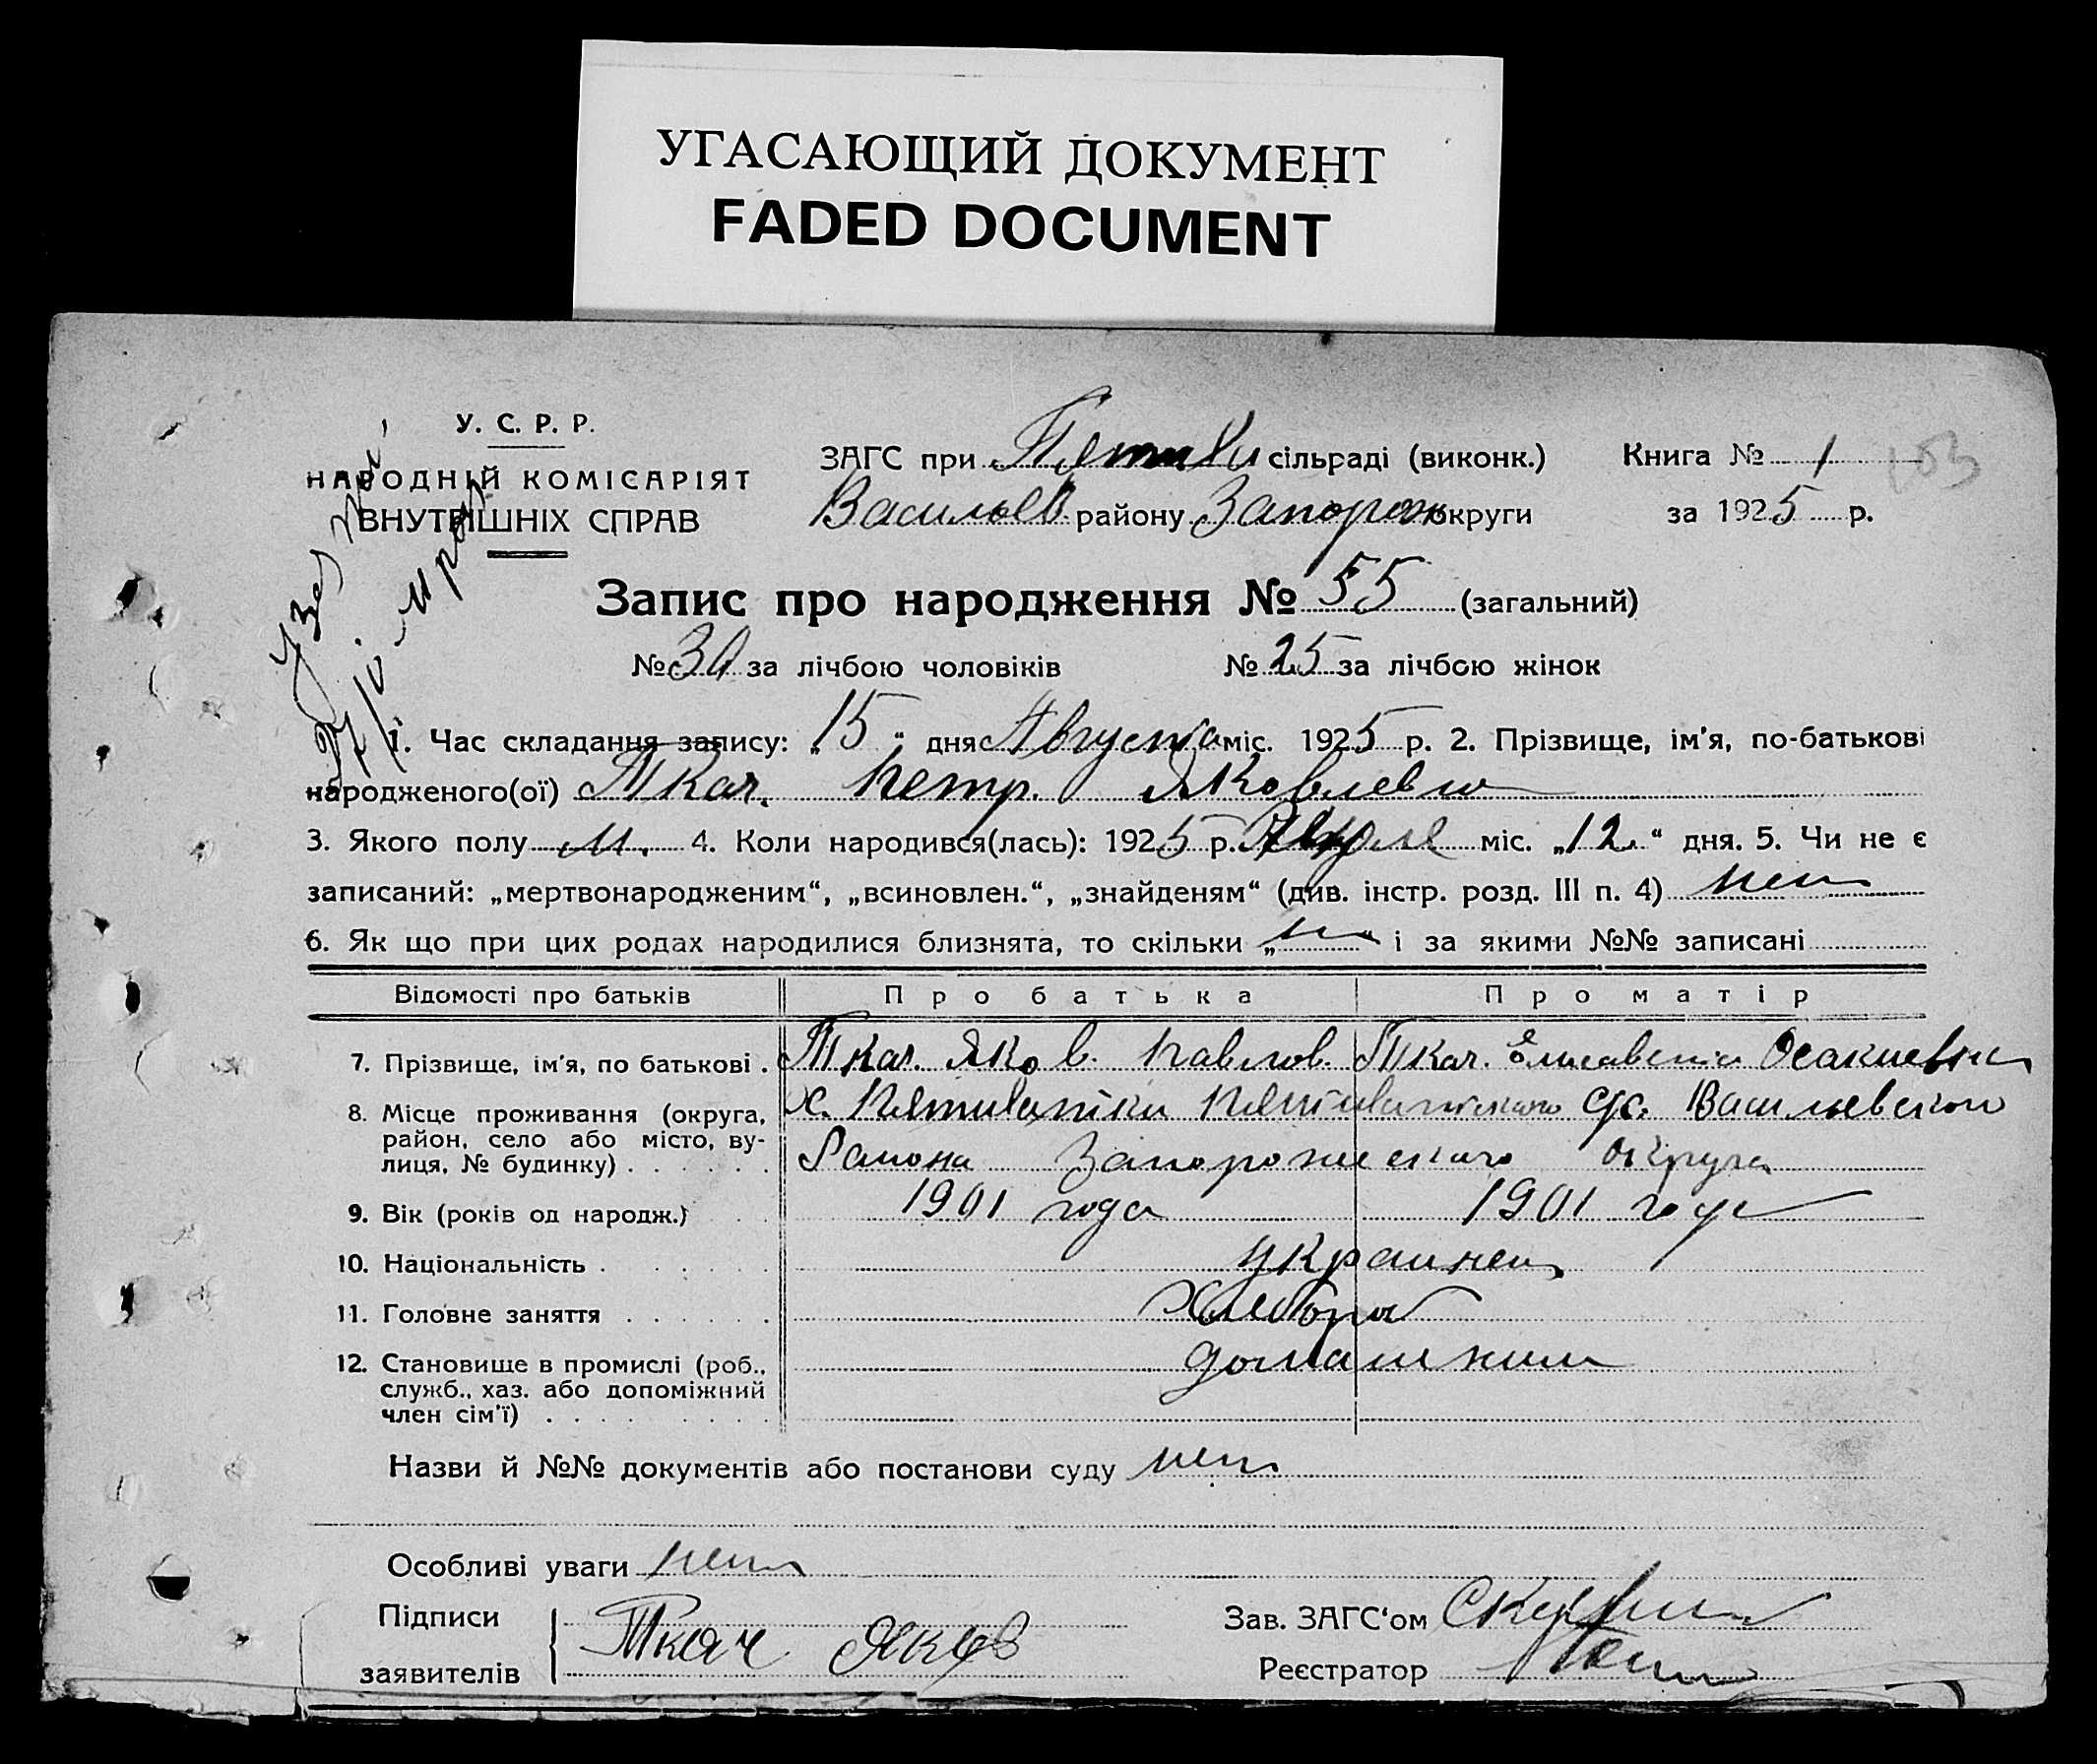 УГАСАЮЩИЙ ДОКУМЕНТ
FADED DOCUMENT
У. С. Р. Р.
НАРОДНІЙ КОМІСАРІЯТ
ВНУТРІШНІХ СПРАВ
ЗАГС при сільраді (виконк.)
Васильев району Запорож округи
Книга № 1
103
за 1925 р.
Запис про народження № 55 (загальний)
№ 30 за лічбою чоловіків № 25 за лічбою жінок
1. Час складання запису: „15“ дня Августа міс. 1925 р. 2. Прізвище, ім'я, по-батькові
народженого(ої) Ткач. Петр. Яковлевич
3. Якого полу м. 4. Коли народився(лась): 1925 р. міс. „12“ дня. 5. Чи не є
записаний: „мертвонародженим“, „всиновлен.“, „знайденям“ (див. інстр. розд. III п. 4) нет
6. Як що при цих родах народилися близнята, то скільки „ “ і за якими №№ записані
Відомості про батьків Про батька Про матір
7. Прізвище, ім'я, по батькові . Ткач. Яков. Павлов. Ткач. Елисавета
8. Місце проживання (округа, район, село або місто, ву-лиця, № будинку) х. с/с. Васильевского
Района Запорожского Округа
9. Вік (років од народж.) 1901 года 1901 года
10. Національність украинец
11. Головне заняття
12. Становище в промислі (роб., служб., хаз. або допоміжний член сім'ї)
Назви й №№ документів або постанови суду нет
Особливі уваги нет
Підписи заявителів Ткач Яков
Зав. ЗАГС'ом
Реєстратор